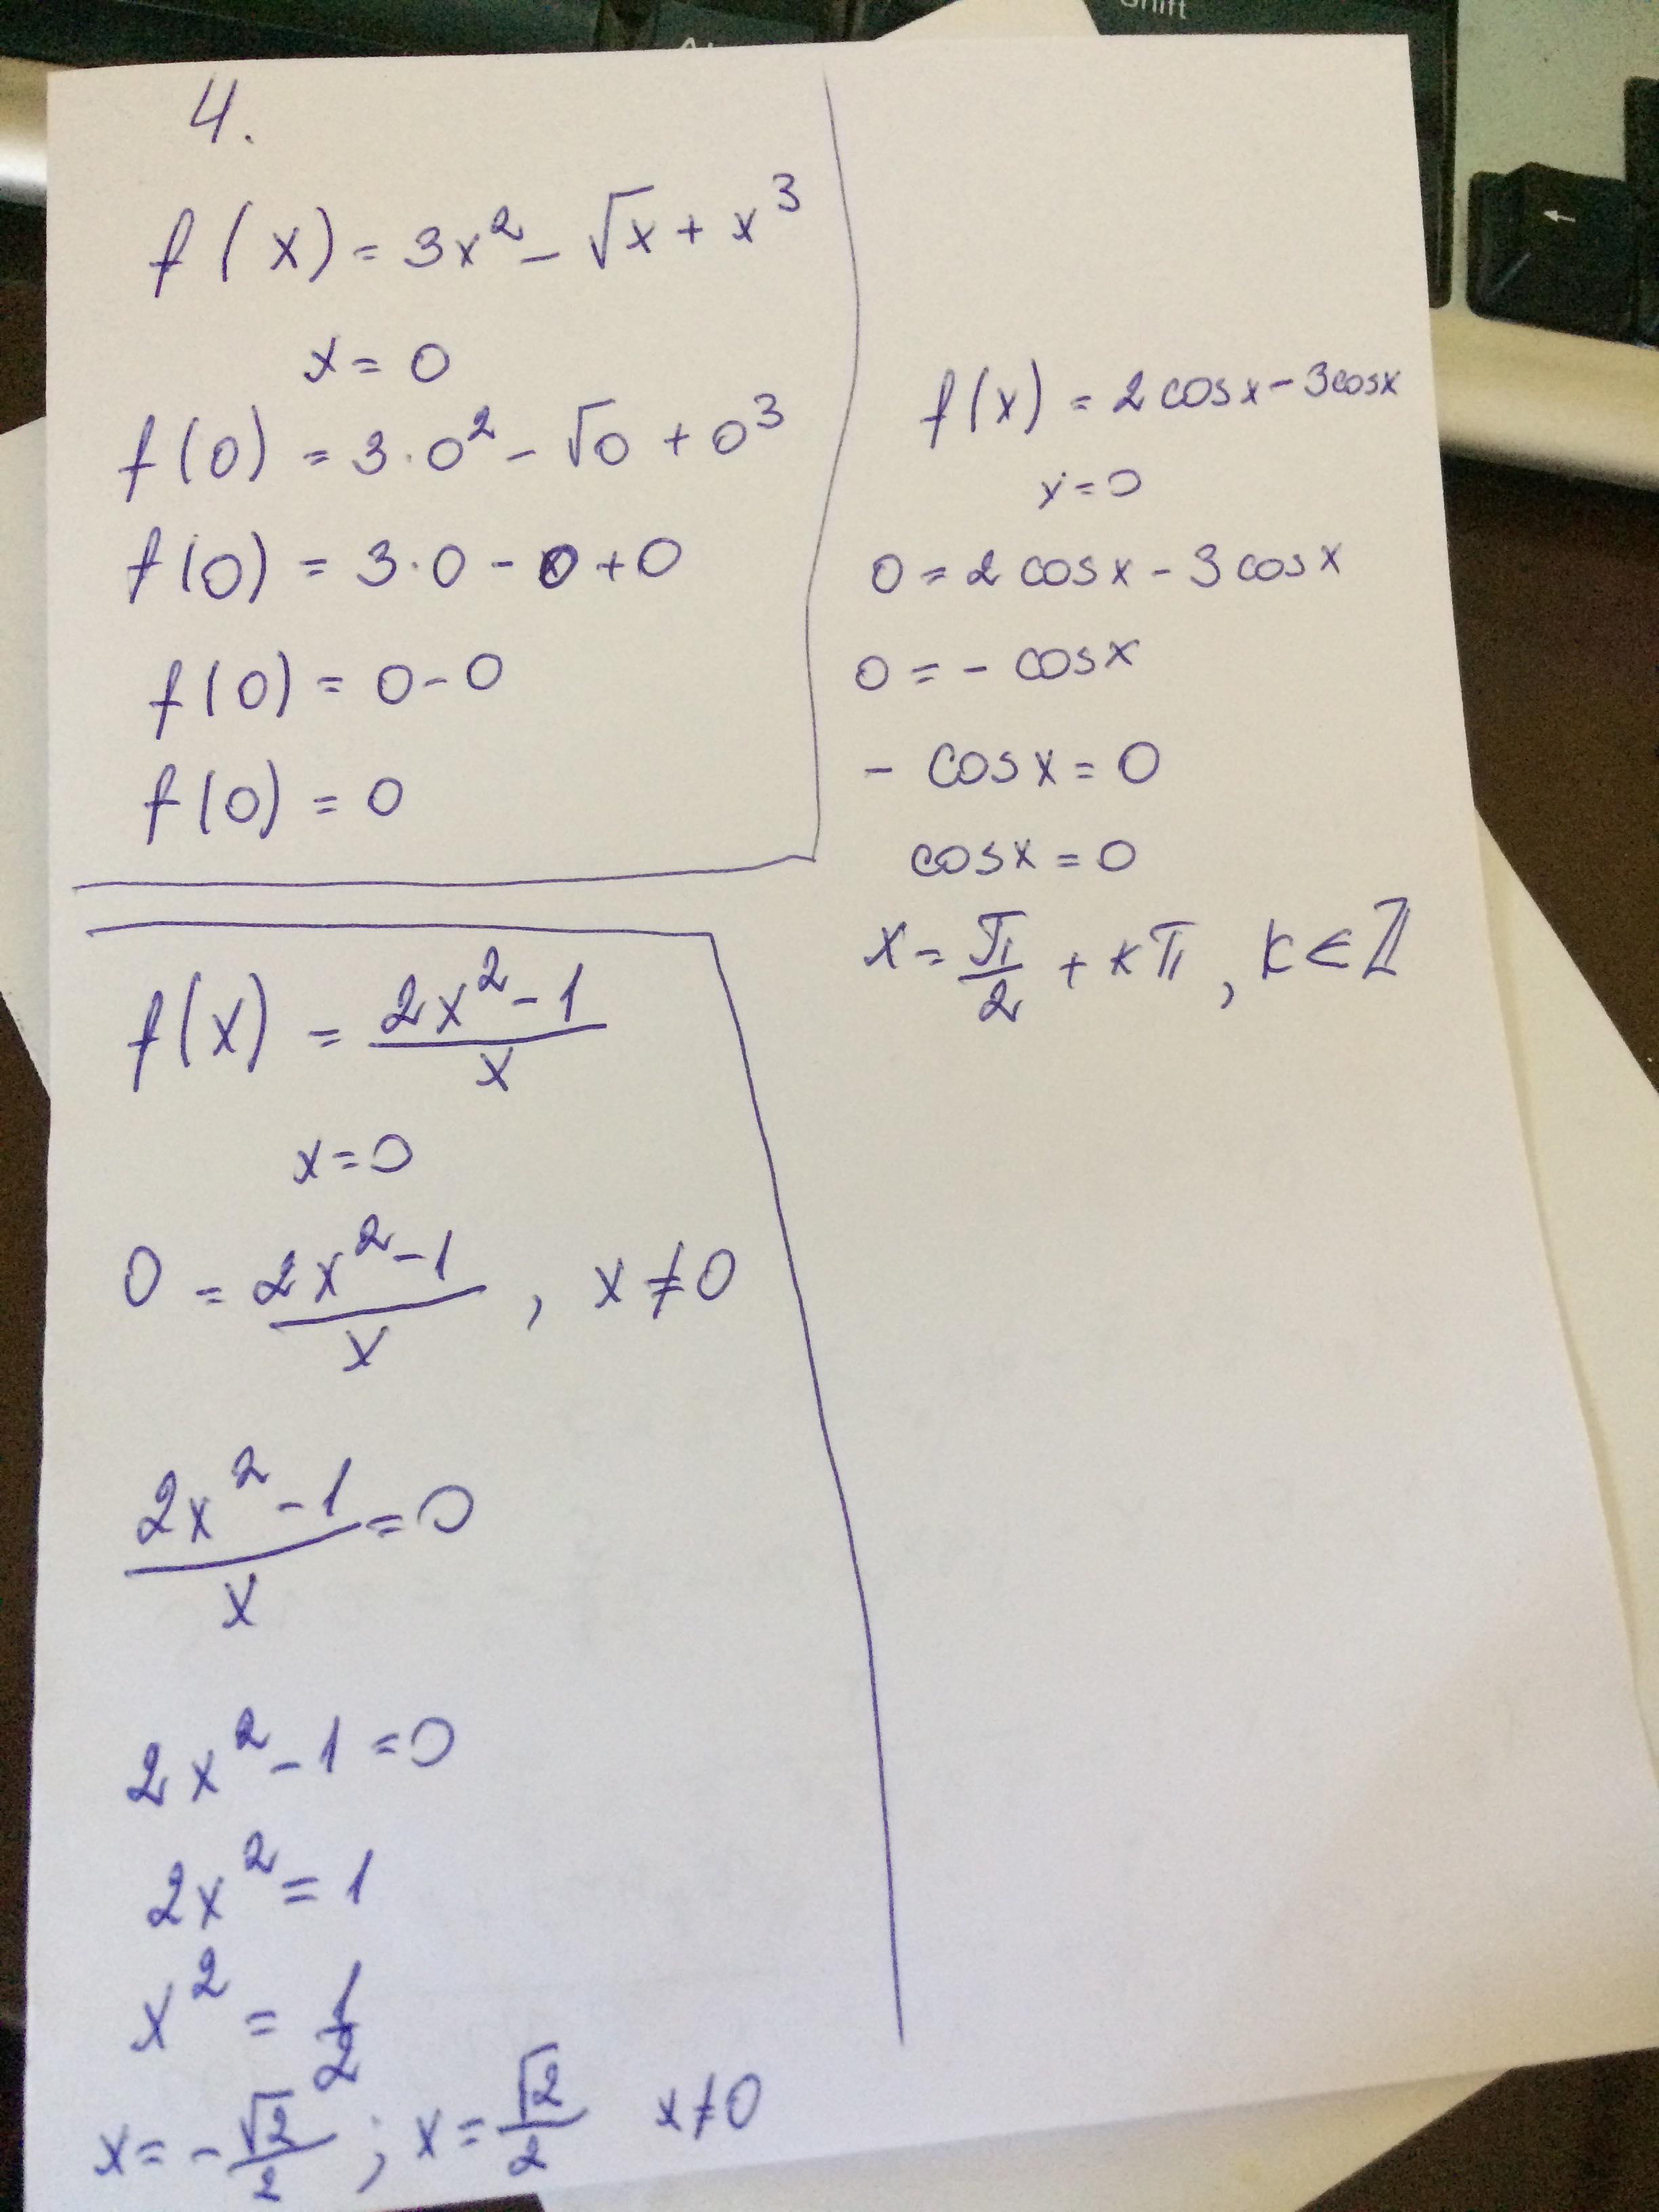 4.
f(x) = 3x² - √x + x³
x = 0
f(0) = 3·0² - √0 + 0³
f(0) = 3·0 - 0 + 0
f(0) = 0 - 0
f(0) = 0
f(x) = (2x² - 1)/x
x = 0
0 = (2x² - 1)/x , x ≠ 0
(2x² - 1)/x = 0
2x² - 1 = 0
2x² = 1
x² = 1/2
x = -√2/2 ; x = √2/2 x ≠ 0
f(x) = 2 cosx - 3cosx
x = 0
0 = 2 cosx - 3 cosx
0 = - cosx
- cosx = 0
cosx = 0
x = π/2 + kπ , k ∈ ℤ
Shift
←